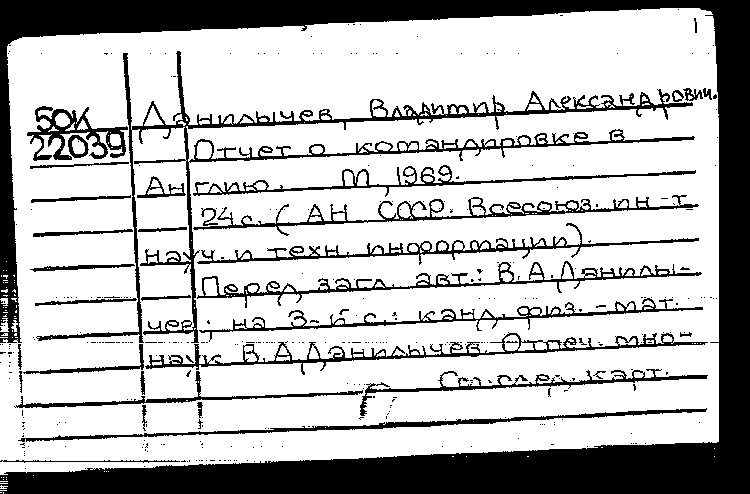 1
БОК Данилычев, Владимир Александрович.
22039 Отчет о командировке в
Англию. М, 1969.
24 с. (АН СССР. Всесоюз. ин-т
науч. и техн. информации).
Перед загл. авт.: В.А.Данилы-
чев; на 3-й с.: канд. физ.-мат.
наук В.А.Данилычев. Отпеч. мно-
См.след. карт.